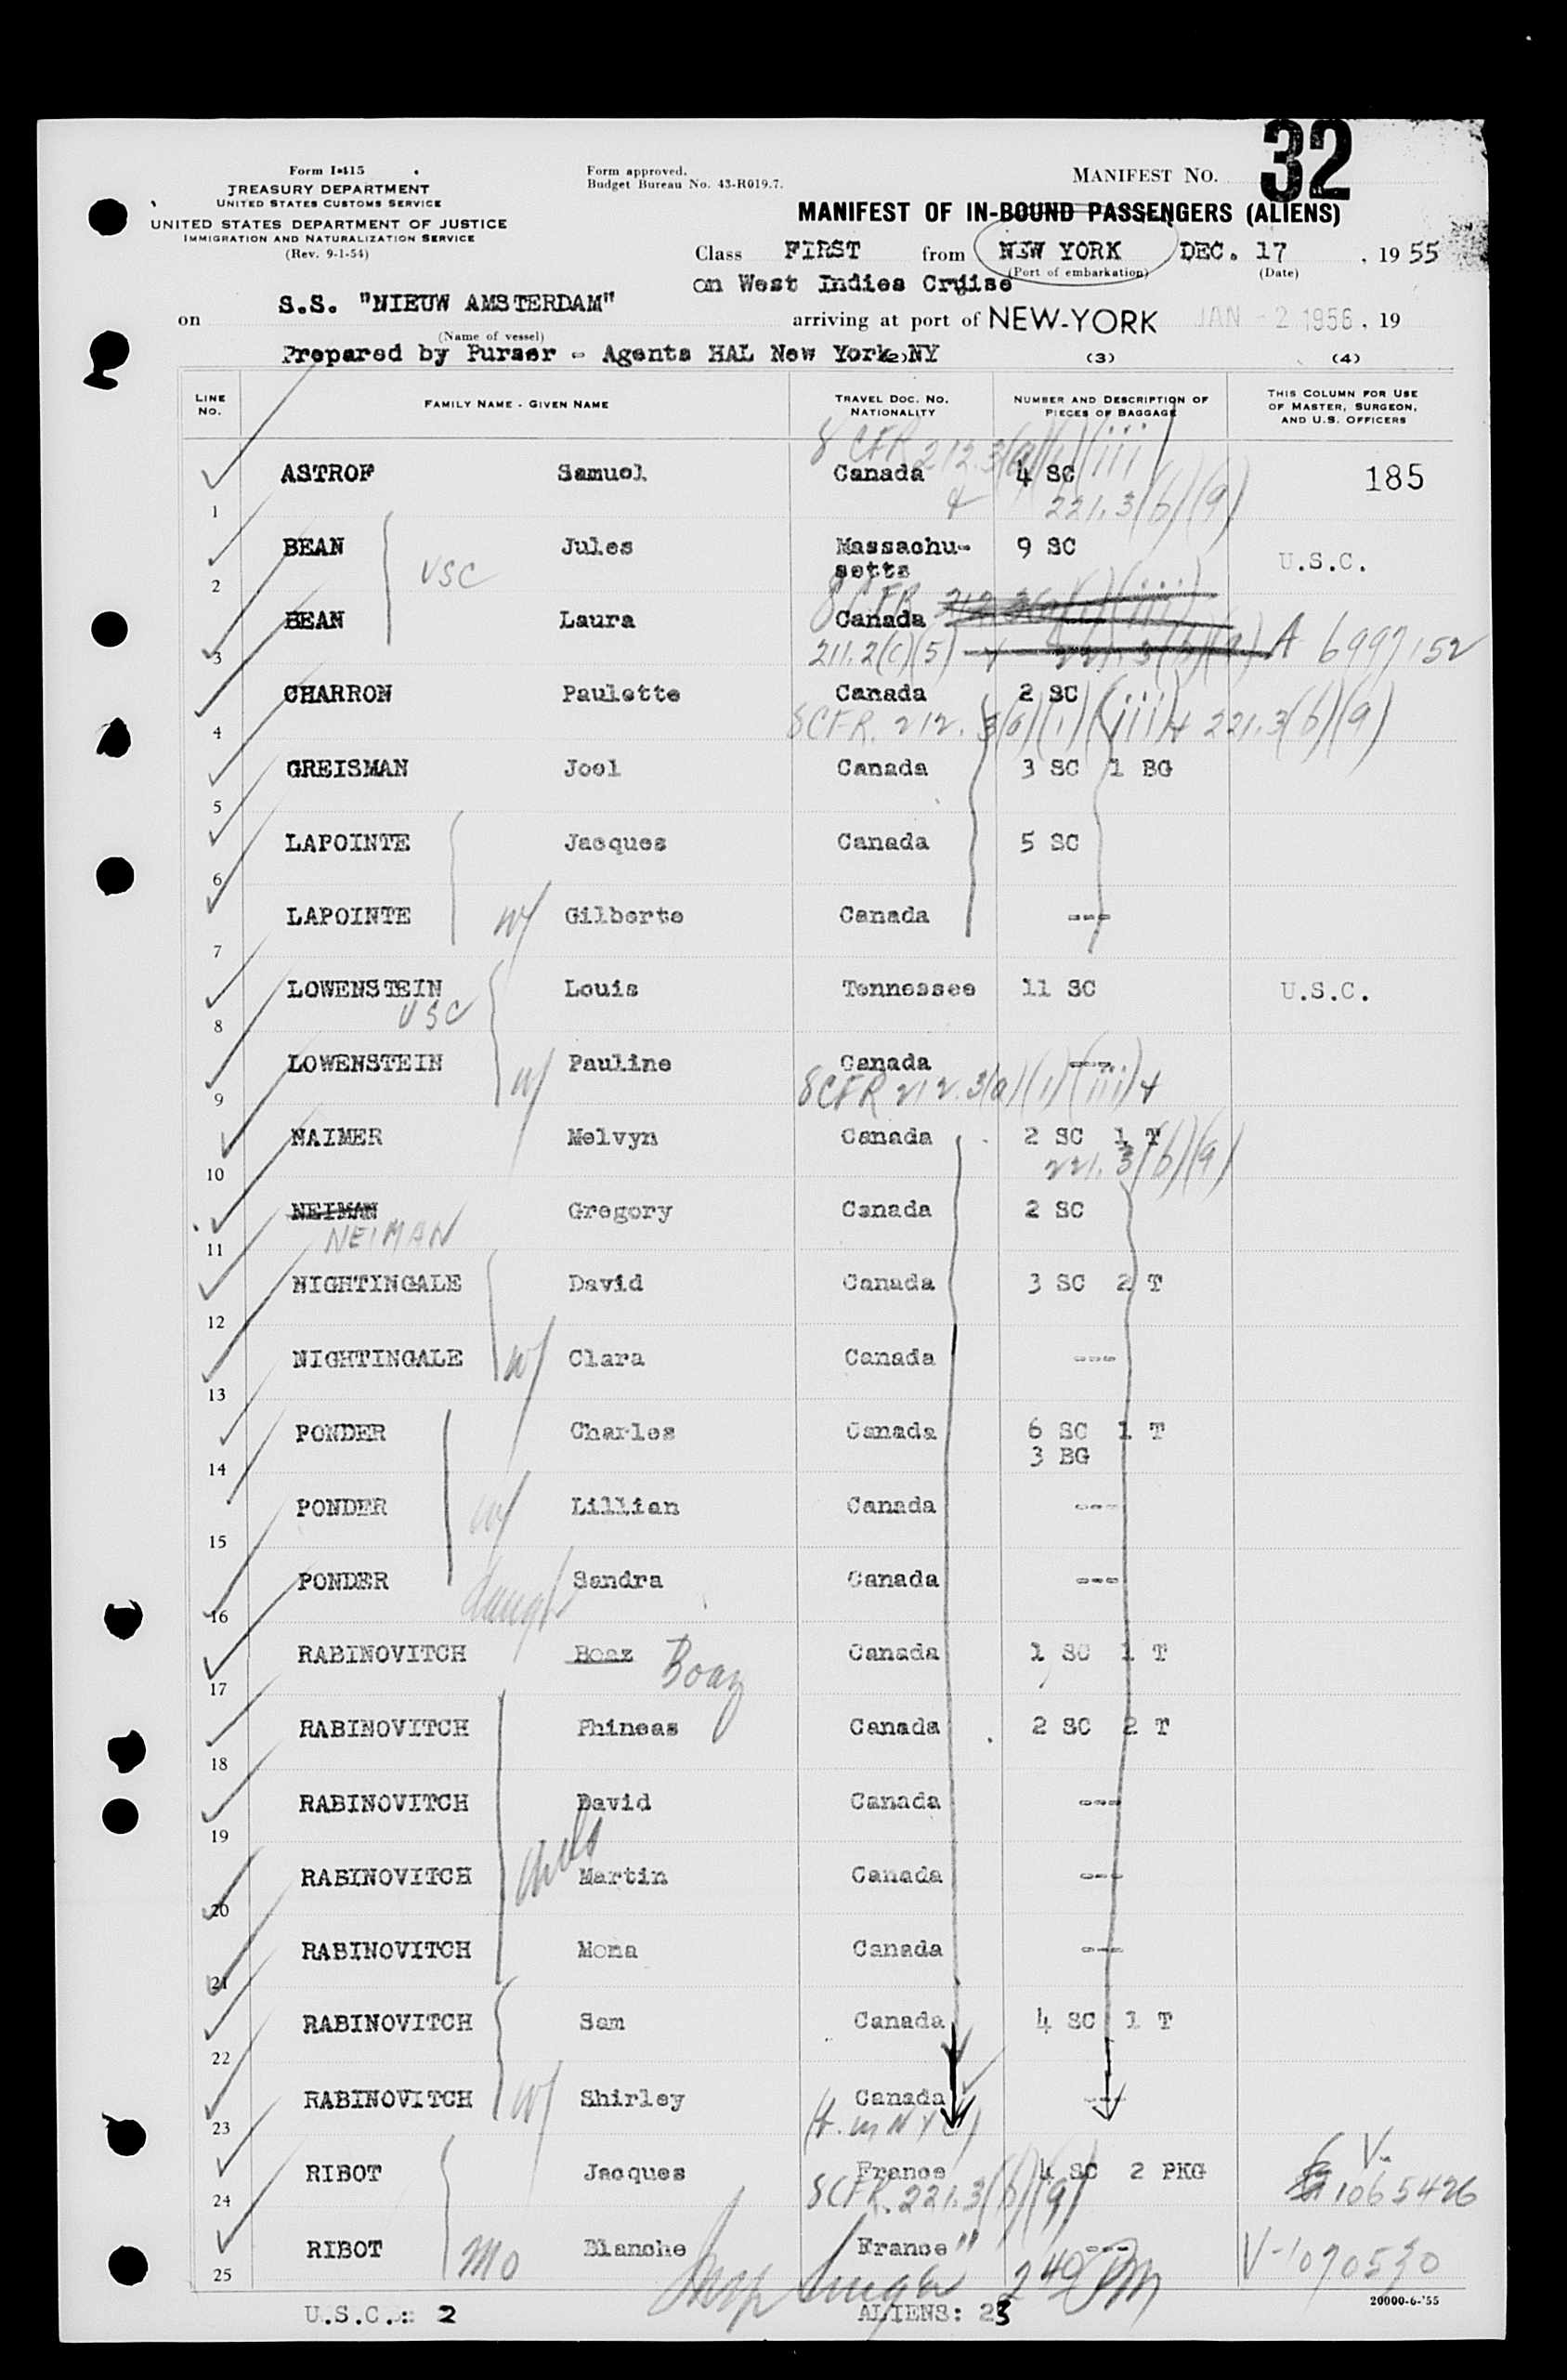 32
Form I-415
TREASURY DEPARTMENT
UNITED STATES CUSTOMS SERVICE
UNITED STATES DEPARTMENT OF JUSTICE
IMMIGRATION AND NATURALIZATION SERVICE
(Rev. 9-1-54)
Form approved.
Budget Bureau No. 43-R019.7.
MANIFEST NO.
MANIFEST OF IN-BOUND PASSENGERS (ALIENS)
Class FIRST from NEW YORK DEC. 17, 1955
(Port of embarkation) (Date)
on West Indies Cruise
on S.S. "NIEUW AMSTERDAM" arriving at port of NEW-YORK JAN - 2 1956, 19
(Name of vessel)
Prepared by Purser - Agents HAL New York NY
(2) (3) (4)
LINE NO. FAMILY NAME - GIVEN NAME TRAVEL DOC. NO. NATIONALITY NUMBER AND DESCRIPTION OF PIECES OF BAGGAGE THIS COLUMN FOR USE OF MASTER, SURGEON, AND U.S. OFFICERS
8 CFR 212.3(a)(1)(iii)
1 ASTROF Samuel Canada 4 SC 185
+ 221.3(b)(9)
2 BEAN Jules Massachusetts 9 SC U.S.C.
USC
8 CFR 212.3(a)(1)(iii)
3 BEAN Laura Canada
211.2(c)(5) + 221.3(b)(9) A 6997152
4 CHARRON Paulette Canada 2 SC
8 CFR. 212.3(a)(1)(iii) + 221.3(b)(9)
5 GREISMAN Joel Canada 3 SC 1 BG
6 LAPOINTE Jacques Canada 5 SC
7 LAPOINTE w/ Gilberte Canada ---
8 LOWENSTEIN Louis Tennessee 11 SC U.S.C.
USC
9 LOWENSTEIN w/ Pauline Canada ---
8 CFR 212.3(a)(1)(iii) +
10 NAIMER Melvyn Canada 2 SC 1 T
221.3(b)(9)
11 NEIMAN Gregory Canada 2 SC
NEIMAN
12 NIGHTINGALE David Canada 3 SC 2 T
13 NIGHTINGALE w/ Clara Canada ---
14 PONDER Charles Canada 6 SC 1 T
3 BG
15 PONDER w/ Lillian Canada ---
16 PONDER daugh Sandra Canada ---
17 RABINOVITCH Boaz Boaz Canada 1 SC 1 T
18 RABINOVITCH Phineas Canada 2 SC 2 T
19 RABINOVITCH David Canada ---
20 RABINOVITCH Martin Canada ---
21 RABINOVITCH Mona Canada ---
22 RABINOVITCH Sam Canada 4 SC 1 T
23 RABINOVITCH w/ Shirley Canada ---
V-
24 RIBOT Jacques France 4 SC 2 PKG 1065426
8 CFR. 221.3(b)(9)
25 RIBOT Mo Blanche France " --- V-1070590
2 40 PM
20000-6-'55
U.S.C.: 2 ALIENS: 23